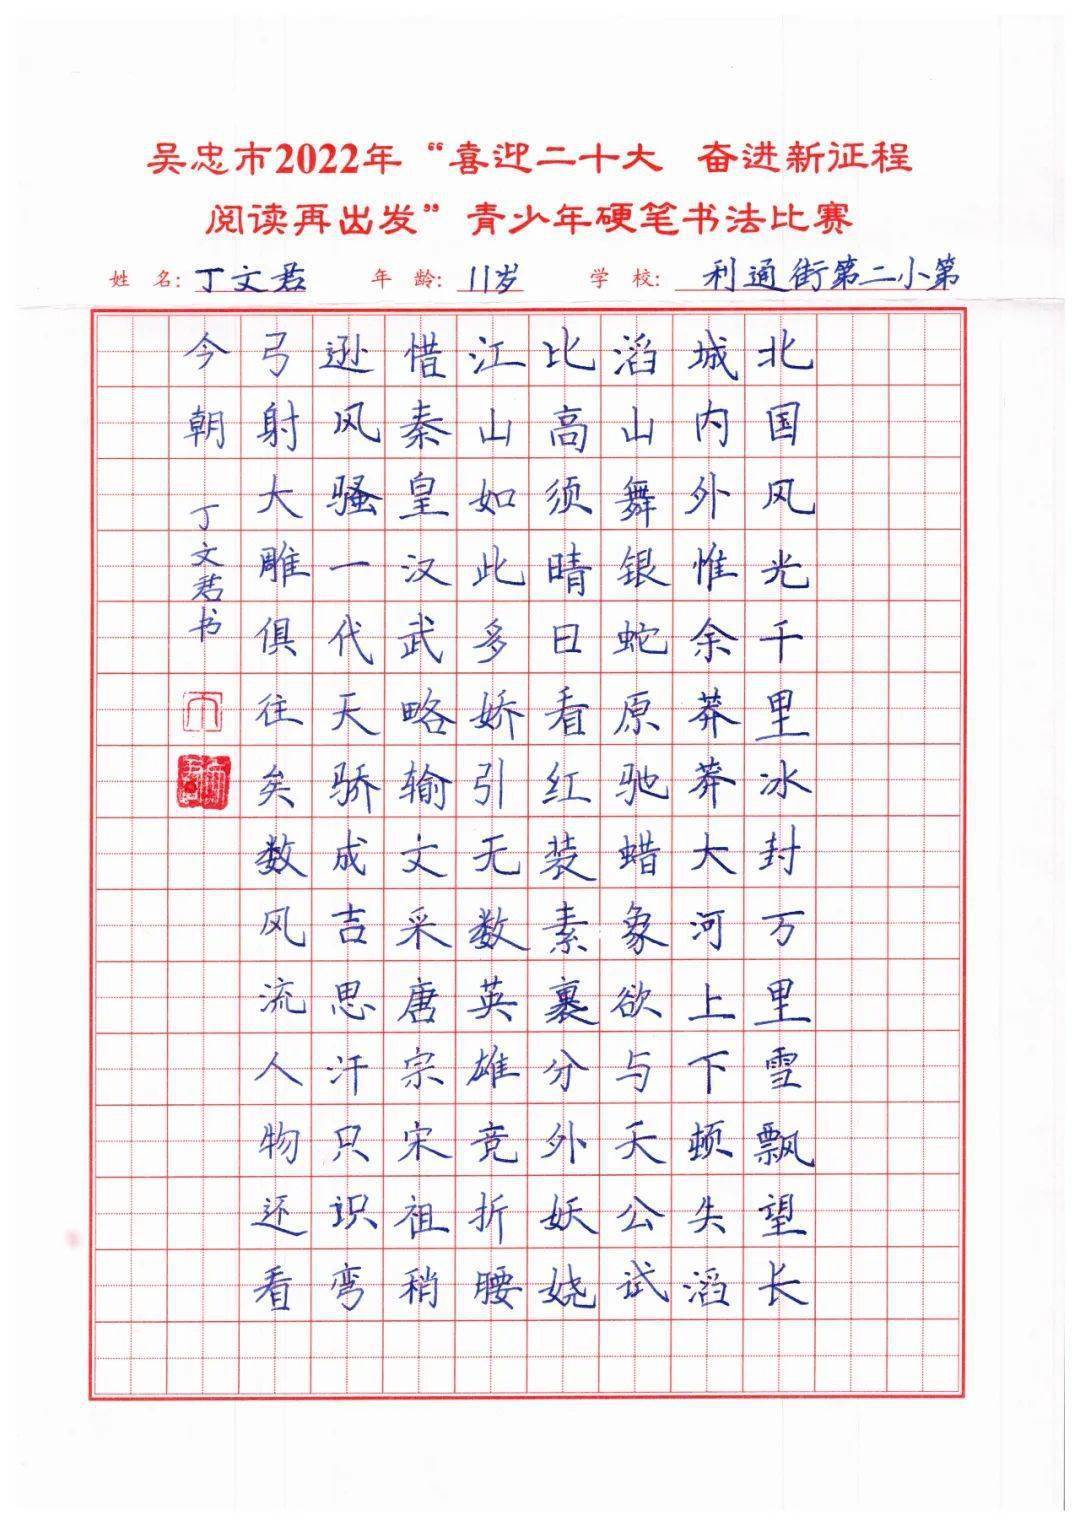 吴忠市2022年“喜迎二十大 奋进新征程
阅读再出发”青少年硬笔书法比赛
姓 名: 丁文君 年 龄: 11岁 学 校: 利通街第二小第
北国风光千里冰封万里雪飘望长
城内外惟余莽莽大河上下顿失滔
滔山舞银蛇原驰蜡象欲与天公试
比高须晴日看红装素裹分外妖娆
江山如此多娇引无数英雄竞折腰
惜秦皇汉武略输文采唐宗宋祖稍
逊风骚一代天骄成吉思汗只识弯
弓射大雕俱往矣数风流人物还看
今朝 丁文君书